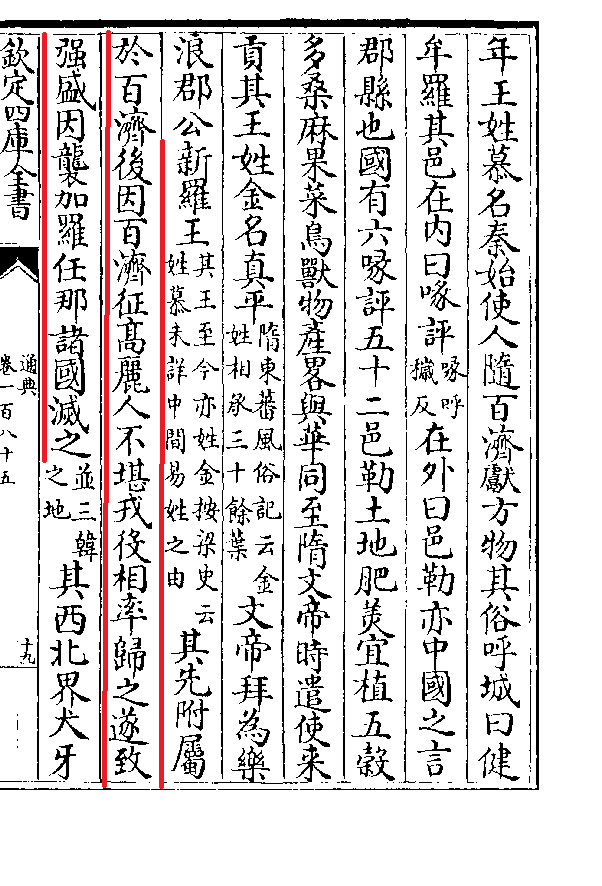 年王姓慕名秦始使人隨百濟獻方物其俗呼城曰健
牟羅其邑在内曰喙評喙呼穢反在外曰邑勒亦中國之言
郡縣也國有六喙評五十二邑勒土地肥美宜植五穀
多桑麻果菜鳥獸物産畧與華同至隋文帝時遣使来
貢其王姓金名真平隋東蕃風俗記云金姓相承三十餘葉文帝拜為樂
浪郡公新羅王其王至今亦姓金按梁史云姓慕未詳中間易姓之由其先附屬
於百濟後因百濟征髙麗人不堪戎役相率歸之遂致
强盛因襲加羅任那諸國滅之並三韓之地其西北界犬牙
欽定四庫全書
通典
卷一百八十五
十九